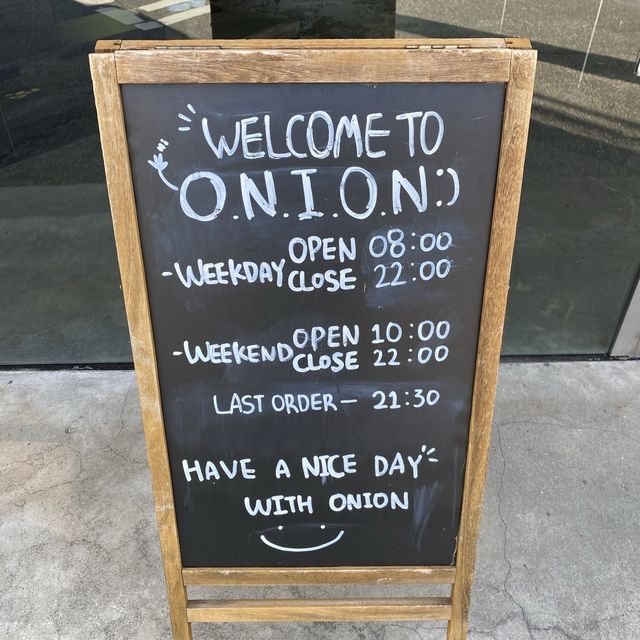 WELCOME TO
O.N.I.O.N :)
-WEEKDAY OPEN 08:00
CLOSE 22:00
-WEEKEND OPEN 10:00
CLOSE 22:00
LAST ORDER — 21:30
HAVE A NICE DAY
WITH ONION